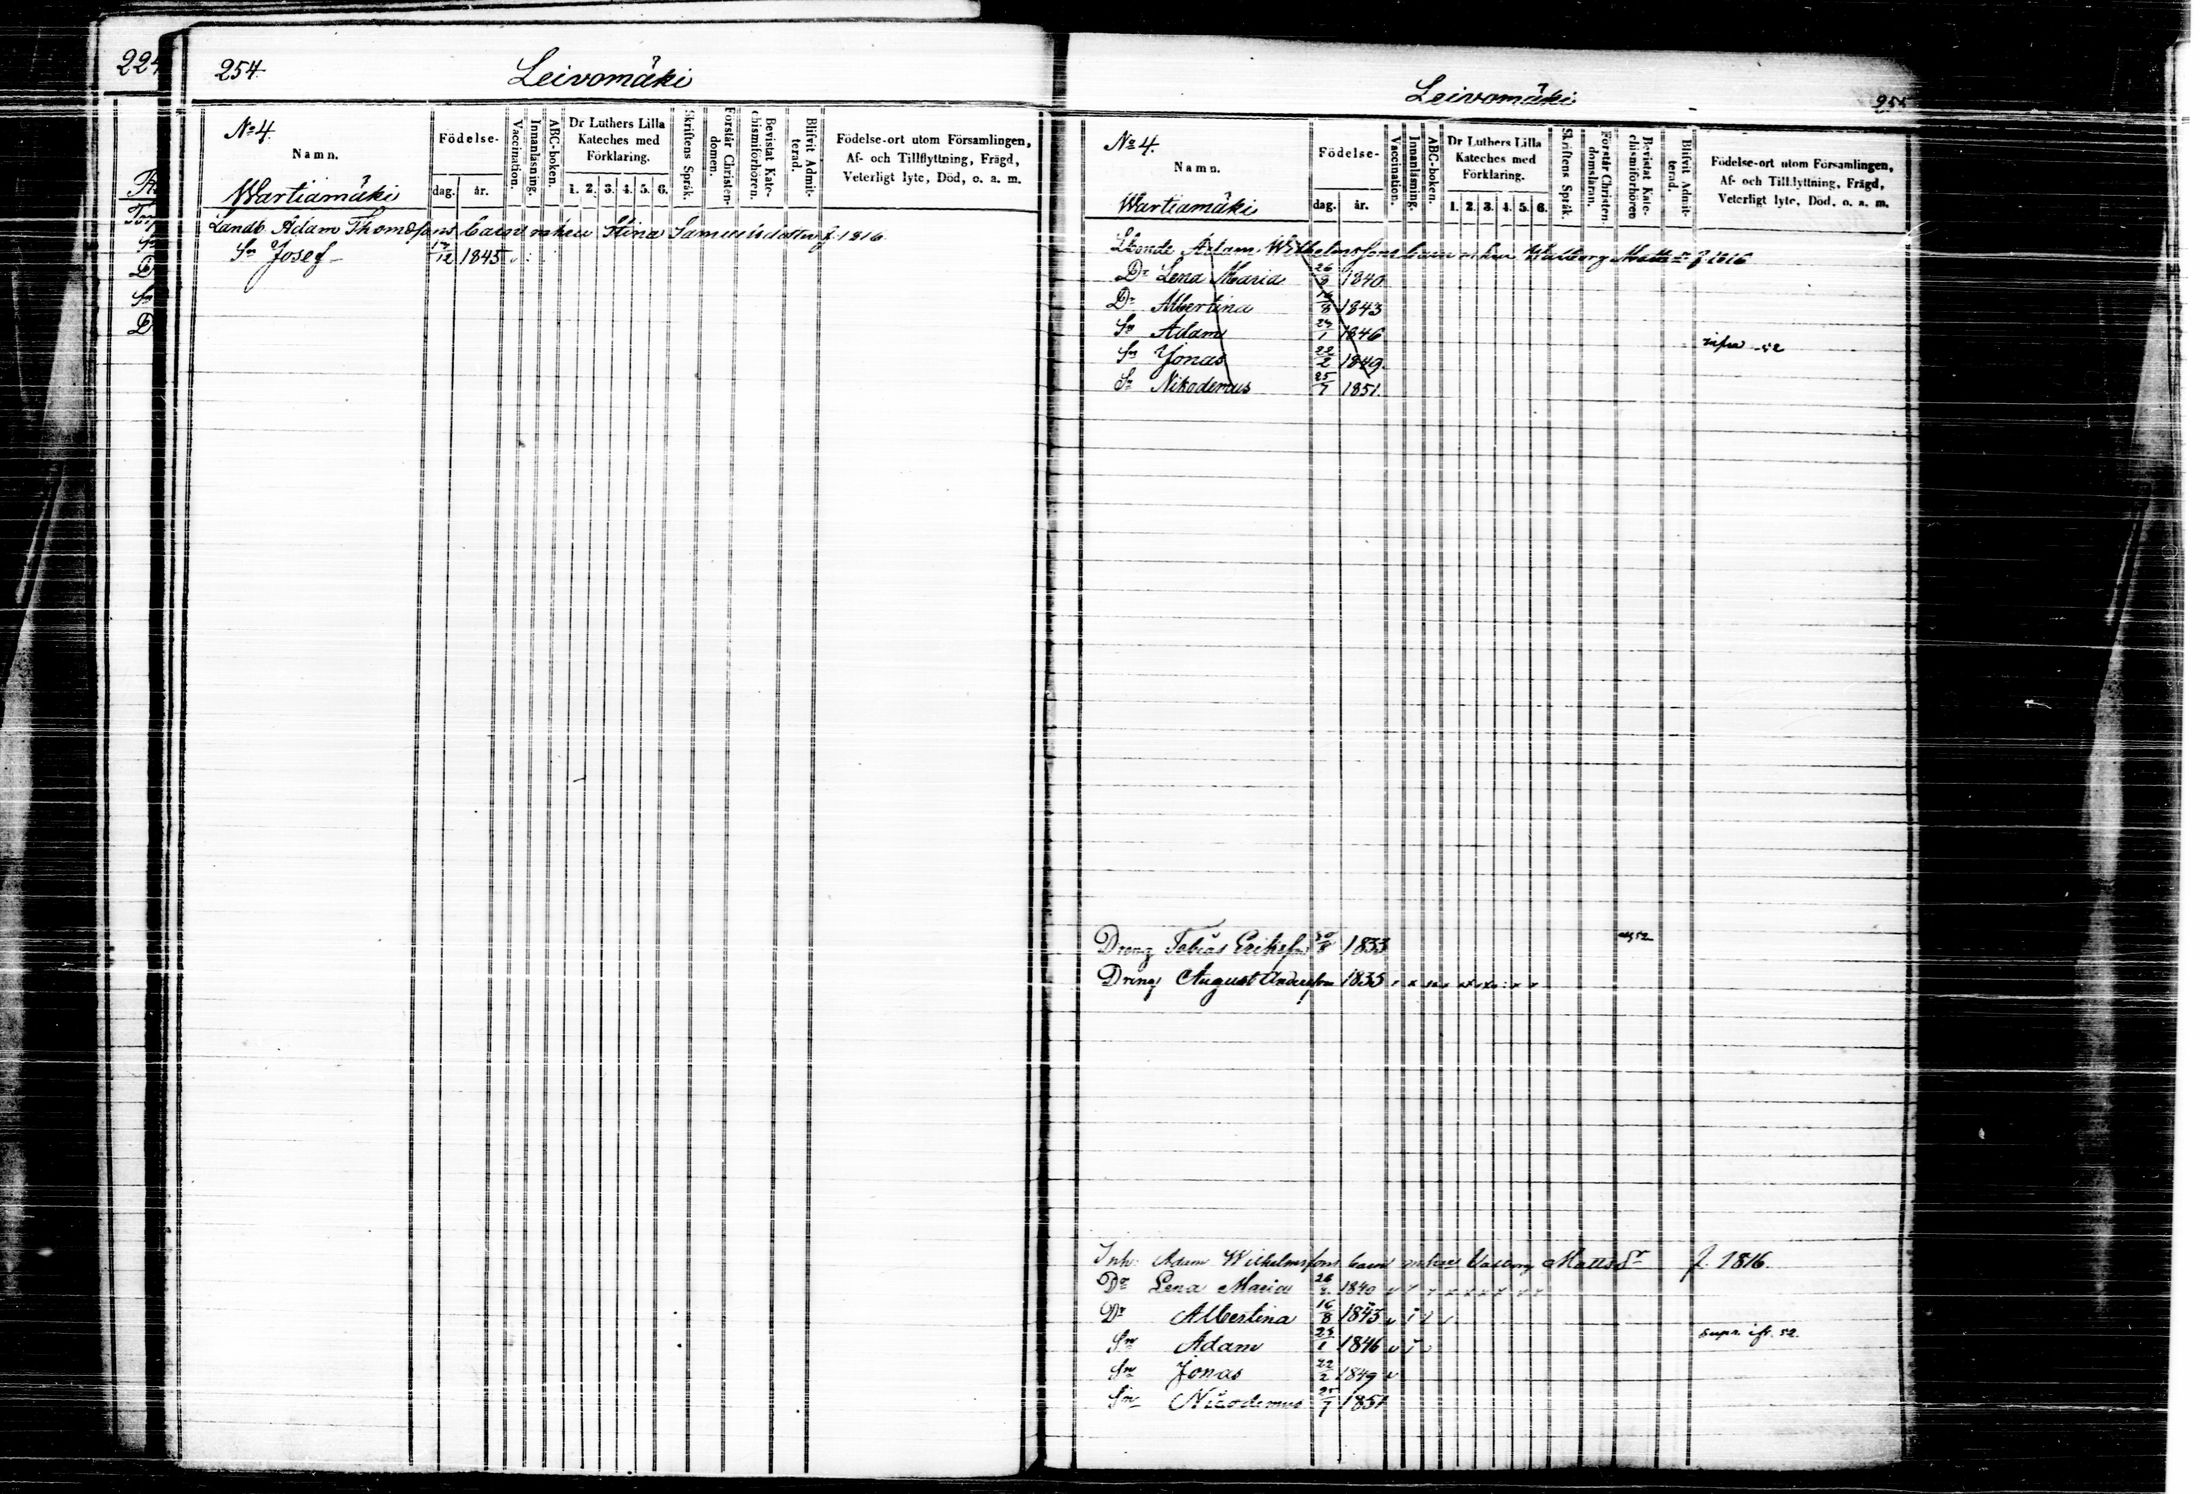 224
254
Leivomäki
No 4.
Namn.
Wartiamäki
Födelse-
dag. år.
Vaccination.
Innanläsning.
ABC-boken.
Dr Luthers Lilla
Kateches med
Förklaring.
1. 2. 3. 4. 5. 6.
Skriftens Språk.
Förstår Christen-
domen.
Bevistat Kate-
chismiförhören.
Blifvit Admit-
terad.
Födelse-ort utom Församlingen,
Af- och Tillflyttning, Frägd,
Veterligt lyte, Död, o. a. m.
Landb Adam Thomæsons barn m hu Stina Samuelsdotter f. 1816
Sn Josef 12 1845
Leivomäki
255
No 4.
Namn.
Wartiamäki
Födelse-
dag. år.
Vaccination.
Innanläsning.
ABC-boken.
Dr Luthers Lilla
Kateches med
Förklaring.
1. 2. 3. 4. 5. 6.
Skriftens Språk.
Förstår Christen-
domsläran.
Bevistat Kate-
chismiförhören
Blifvit Admit-
terad.
Födelse-ort utom Församlingen,
Af- och Tillflyttning, Frägd,
Veterligt lyte, Död, o. a. m.
Adam Wilhelmssons barn m hu Walborg Matts dr f 1816
Dr Lena Maria 26 1840
Dr Albertina 16/8 1843
Sn Adam 24/1 1846 infra 52
Sn Jonas 22/2 1849
Sn Nikodemus 25/7 1851.
Dreng Tobias Eriksson 30/8 1833 52
Dreng August Andersson 1835
Inh: Adam Wilhelmssons barn m hu Valborg Matts Dr f. 1816.
Dr Lena Maria 26 1840
Dr Albertina 16/8 1843
Sn Adam 24/1 1846 supr. 52.
Sn Jonas 22/2 1849
Sn Nicodemus 25/7 1851